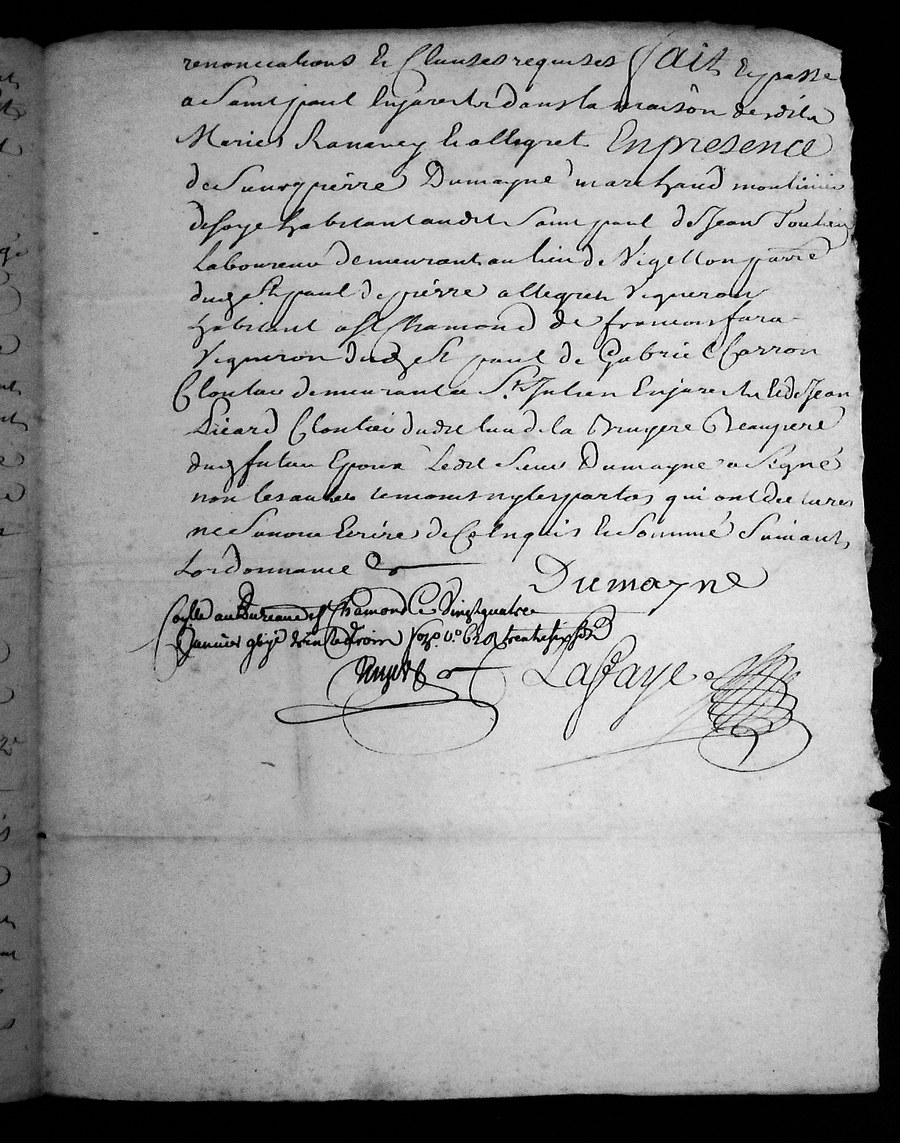 renonciations & Clauses requises fait & passe
a Saint paul En Jarest & dans la maison desdits
Maries Ranavey & allegret En presence
de Sieur pierre Dumayne marchand moulinier
de soye habitant audit Saint paul de Jean
Laboureur demeurant au lieu de Vigellon parre
dud St paul de pierre allegret Vigneron
habitant a St Chamond de francois fara
Vigneron dud St paul de Gabriel Carron
Cloutier demeurant a St Julien En Jarest & de Jean
Picard Cloutier dudit lieu de la Bruyere Beaupere
dud futur Epoux Ledit Sieur Dumayne a Signé
non les autres temoins ny les parties qui ont declarés
ne Savoir Ecrire de Ce Enquis & Sommé Suivant
Lordonnance
Dumayne
au Bureau de St Chamond Ce Vingt quatre
Janvier
Lafaye